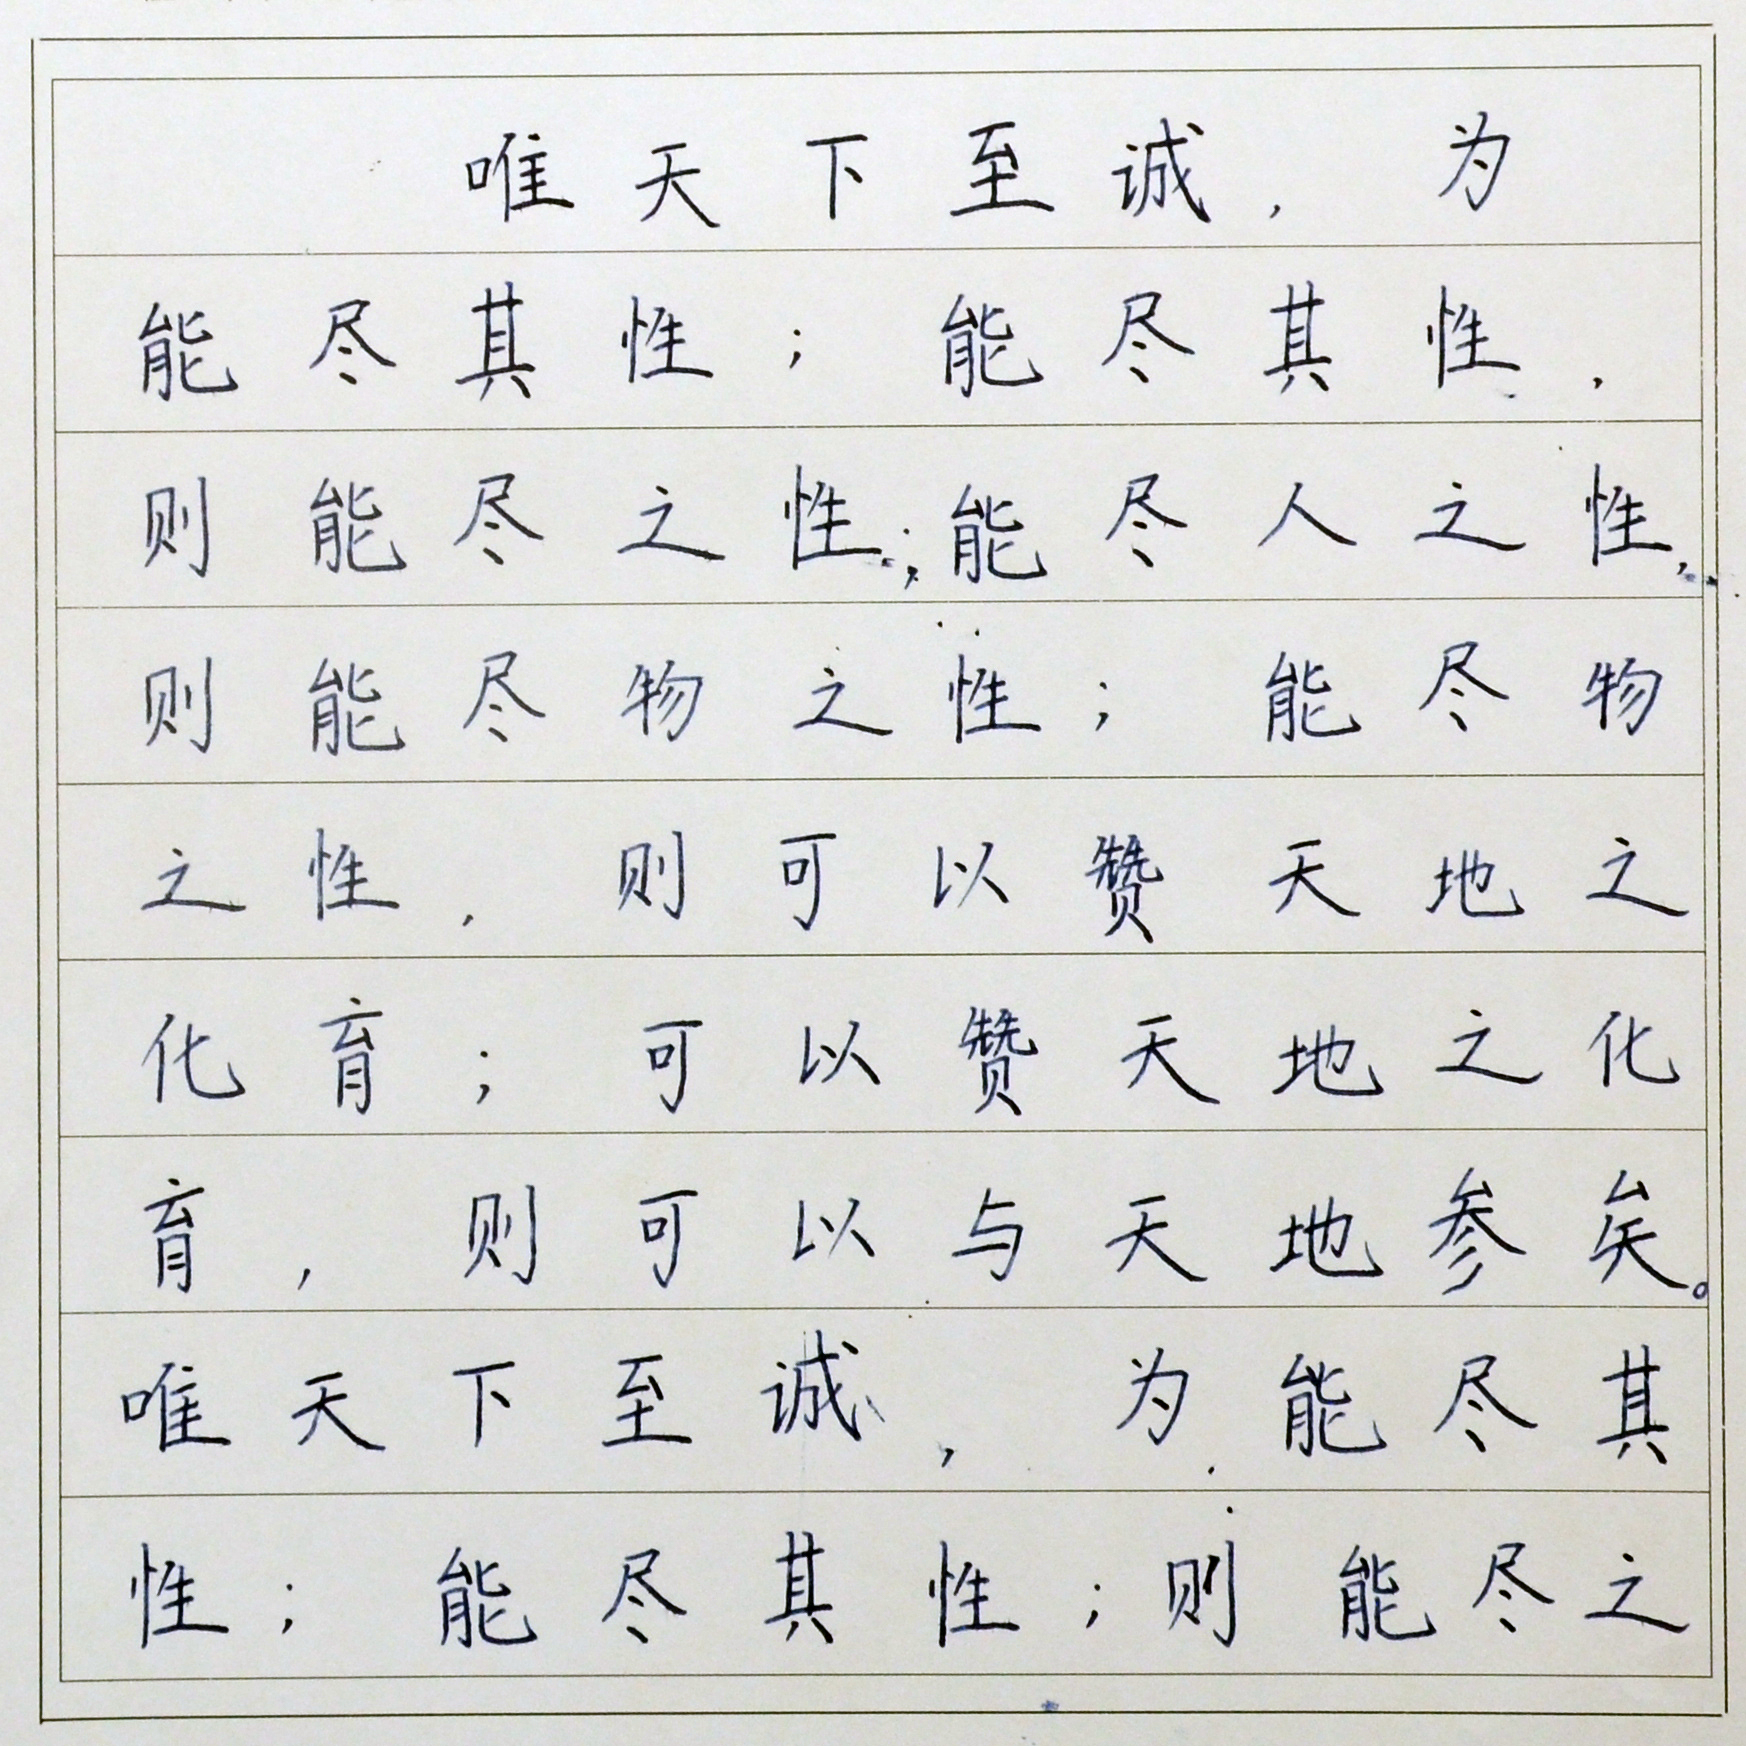 唯天下至诚，为
能尽其性；能尽其性，
则能尽之性；能尽人之性，
则能尽物之性；能尽物
之性，则可以赞天地之
化育；可以赞天地之化
育，则可以与天地参矣。
唯天下至诚，为能尽其
性；能尽其性；则能尽之